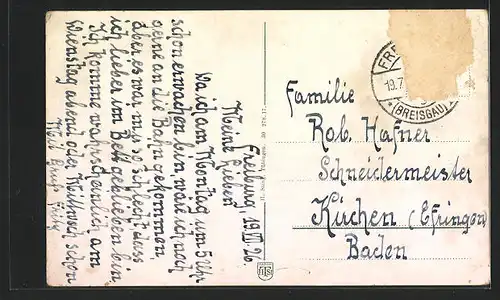 Freiburg, 19.VII.26.
Meine Lieben!
Da ich am Montag um 5 Uhr
schon erwachen bin, wäre ich noch
gerne an die Bahn gekommen,
aber es war mir so schlecht dass
ich lieber im Bett geblieben bin,
Ich komme wahrscheinlich am
Dienstag abend oder Mittwoch schon
Mit Gruss Fritz
FRE
19.7
(BREISGAU)
Familie
Rob. Hafner
Schneidermeister
Kirchen (Efringen)
Baden